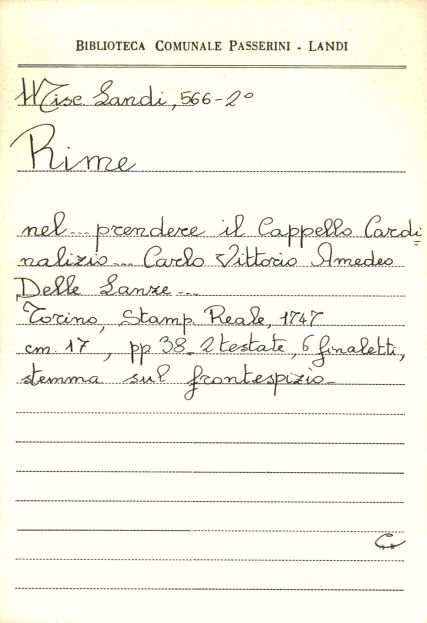 BIBLIOTECA COMUNALE PASSERINI - LANDI
Misc. Landi, 566-2°
Rime
nel... prendere il Cappello Cardi=
nalizio... Carlo Vittorio Amedeo
Delle Lanze...
Torino, Stamp. Reale, 1747
cm. 17, pp 38. 2 testate, 6 finaletti,
stemma sul frontespizio.